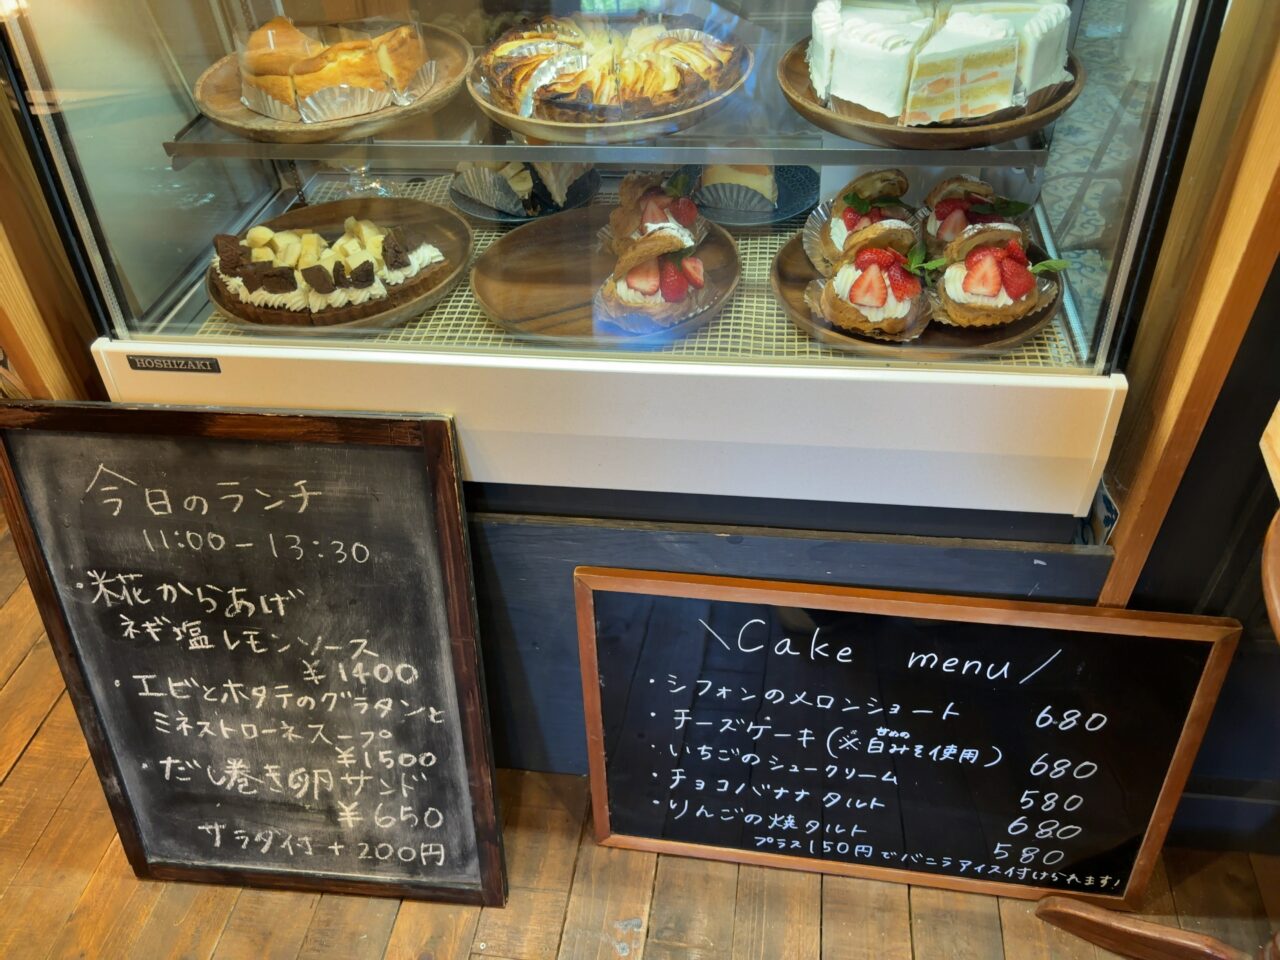 HOSHIZAKI
今日のランチ
11:00-13:30
・米花からあげ
ネギ塩レモンソース
¥1400
・エビとホタテのグラタンと
ミネストローネスープ
¥1500
・だし巻き卵サンド
¥650
サラダ付き+200円
\Cake menu/
・シフォンのメロンショート 680
・チーズケーキ(※白みそ使用) 680
・いちごのシュークリーム 580
・チョコバナナタルト 680
・りんごの焼タルト 580
プラス150円でバニラアイス付けられます!